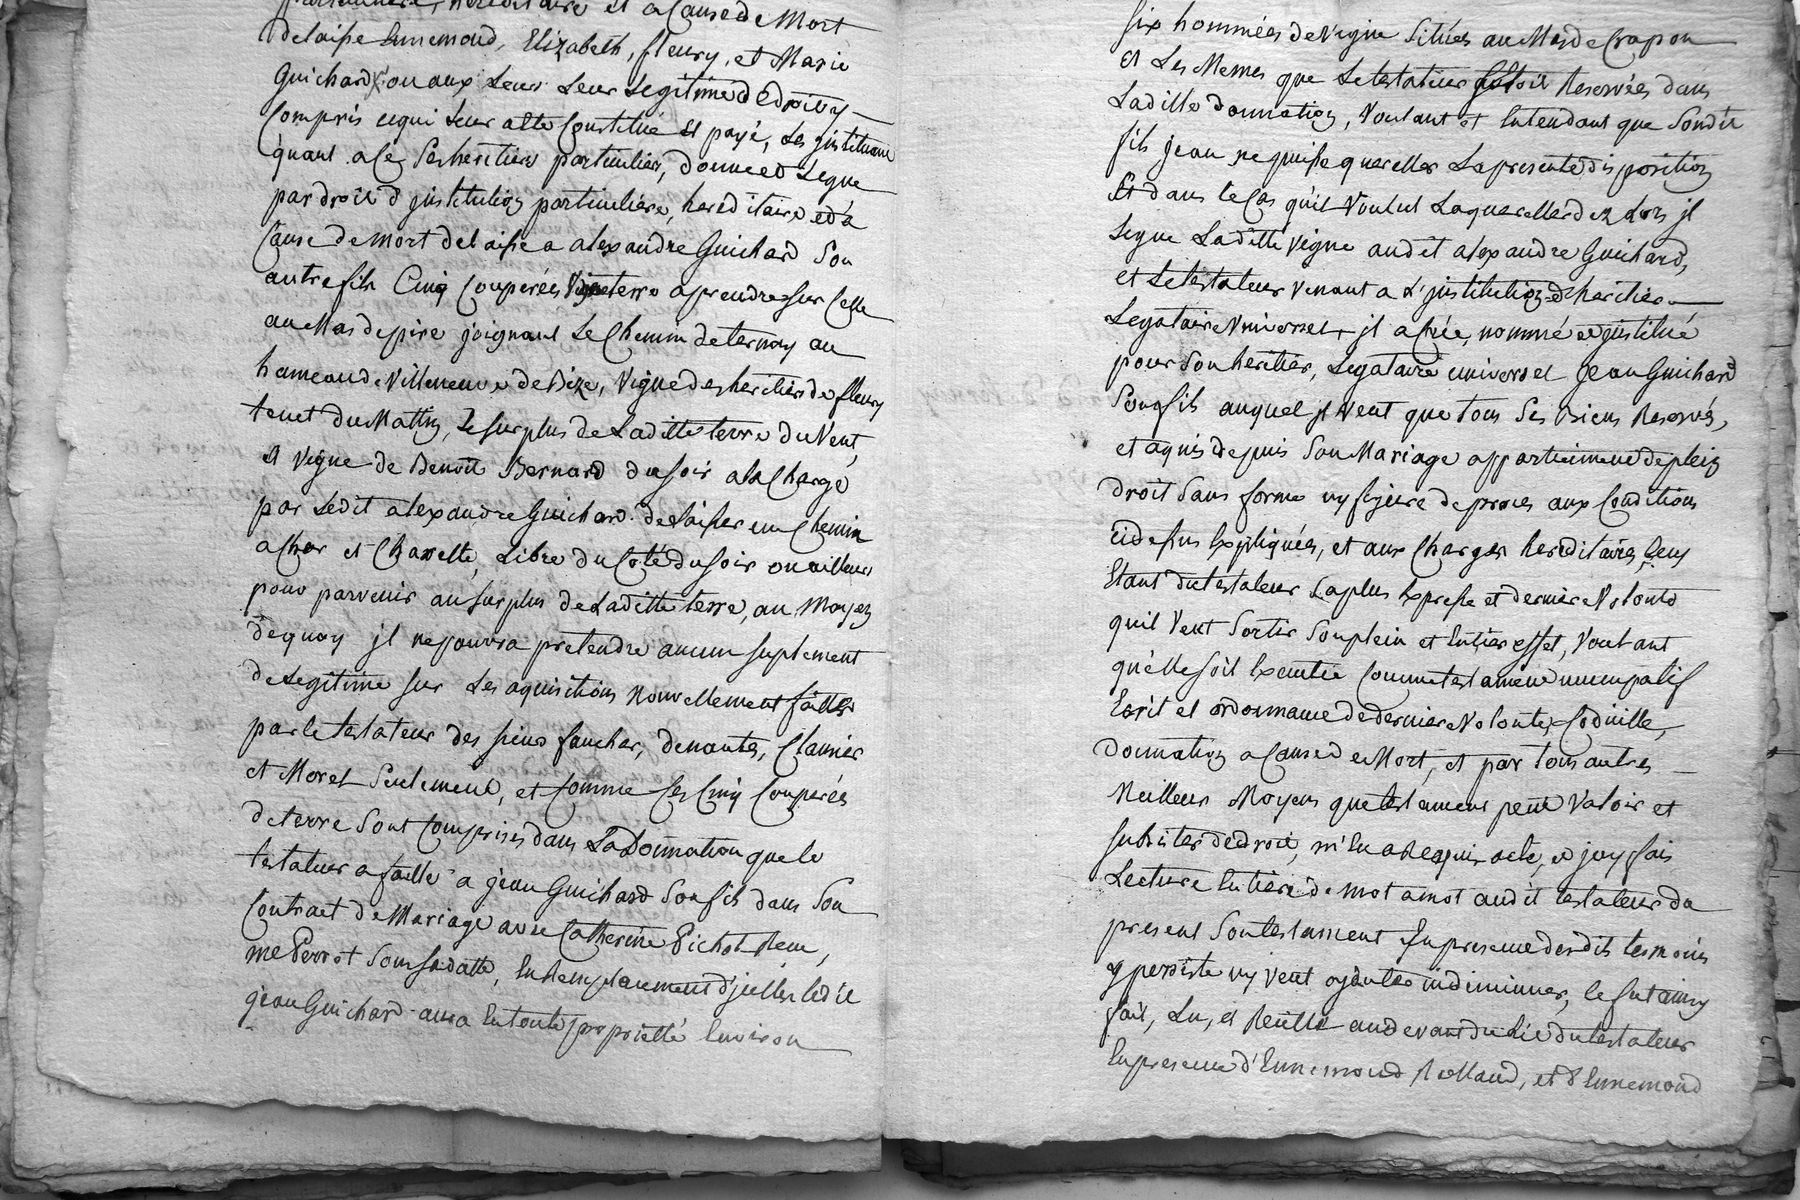 particuliere, hereditaire et a Cause de Mort
delaisse Ennemond, Elizabeth, fleury, et Marie
Guichard, ou aux Leurs Leur Legitime de droit y
Compris cequi Leur a Eté Constitué Et payé, Les jnstituant
quant a Cé Ses heritiers particuliers, donne et Legue
par droit d'jnstitution particuliere, hereditaire et a
Cause de mort delaisse a alexandre Guichard Son
autre fils Cinq Couperées terre a prendre sur Celle
au Mas de pire joignant Le Chemin de ternay au
hameau de Villeneuve de Bize, Vigne des heritiers de fleury
tenet du Matin, Le surplus de Laditte terre du Vent,
Et Vigne de Benoit Bernard du soir a la Charge
par Ledit alexandre Guichard de Laisser un Chemin
a Char et Charette, Libre du Coté du soir ou ailleurs
pour parvenir au surplus de Laditte terre, au Moyen
dequoy jl ne pourra pretendre aucun suplement
de Legitime sur Les aquisitions Nouvellement faittes
par le testateur des sieurs faucher, denantes, Clamier
et Morel Seulement, et Comme Ces Cinq Couperés
de terre Sont Comprises dans La Donnation que le
testateur a faitte a jean Guichard Son fils dans Son
Contract de Mariage avec Catherine Pichot Reçu,
me Perrot Sous sa datte, En Remplacement d'jcelles Ledit
jean Guichard aura En toute proprietté Environ
six hommées de Vigne Situées au Mas de Crapon
Et Les Memes que Le testateur Reservées dans
Laditte donnation, Voulant et Entendant que Sondit
fils jean ne puisse quereller La presente disposition
Et dans le Cas qu'il Voulut La quereller dez Lors jl
Legue Laditte Vigne audit alexandre Guichard,
et Le testateur Venant a L'jnstitution d'heritier
Legataire Universel, jl a Crée, nommé et jnstitué
pour Son heritier, Legataire universel jean Guichard
Son fils auquel jl Veut que tous Ses Biens Reservés,
et aquis depuis Son Mariage appartiennent de plein
droit Sans forme ny figure de proces aux Conditions
cidessus Expliquées, et aux Charges hereditaires, Ceuy
Etant du testateur La plus Expresse et derniere Volonté
quil Veut Sortir Son plein et Entier effet, Voulant
qu'Elle soit Executée Comme testament nuncupatif
Ecrit et ordonnance de derniere Volonté, Codicille,
Donnation a Cause de Mort, et par tous autres
Meilleurs Moyens que testament peut Valoir et
subsister de droit, m'En a Requis acte, et j'ay fais
Lecture Entiere de mot a mot audit testateur du
present Son testament En presence desdits temoins
y persiste ny Veut ajouter ni diminuer, le fut ainsy
fait, Lu, et Recitté au devant du Lit du testateur
En presence d'Ennemond Rolland, et d'Ennemond